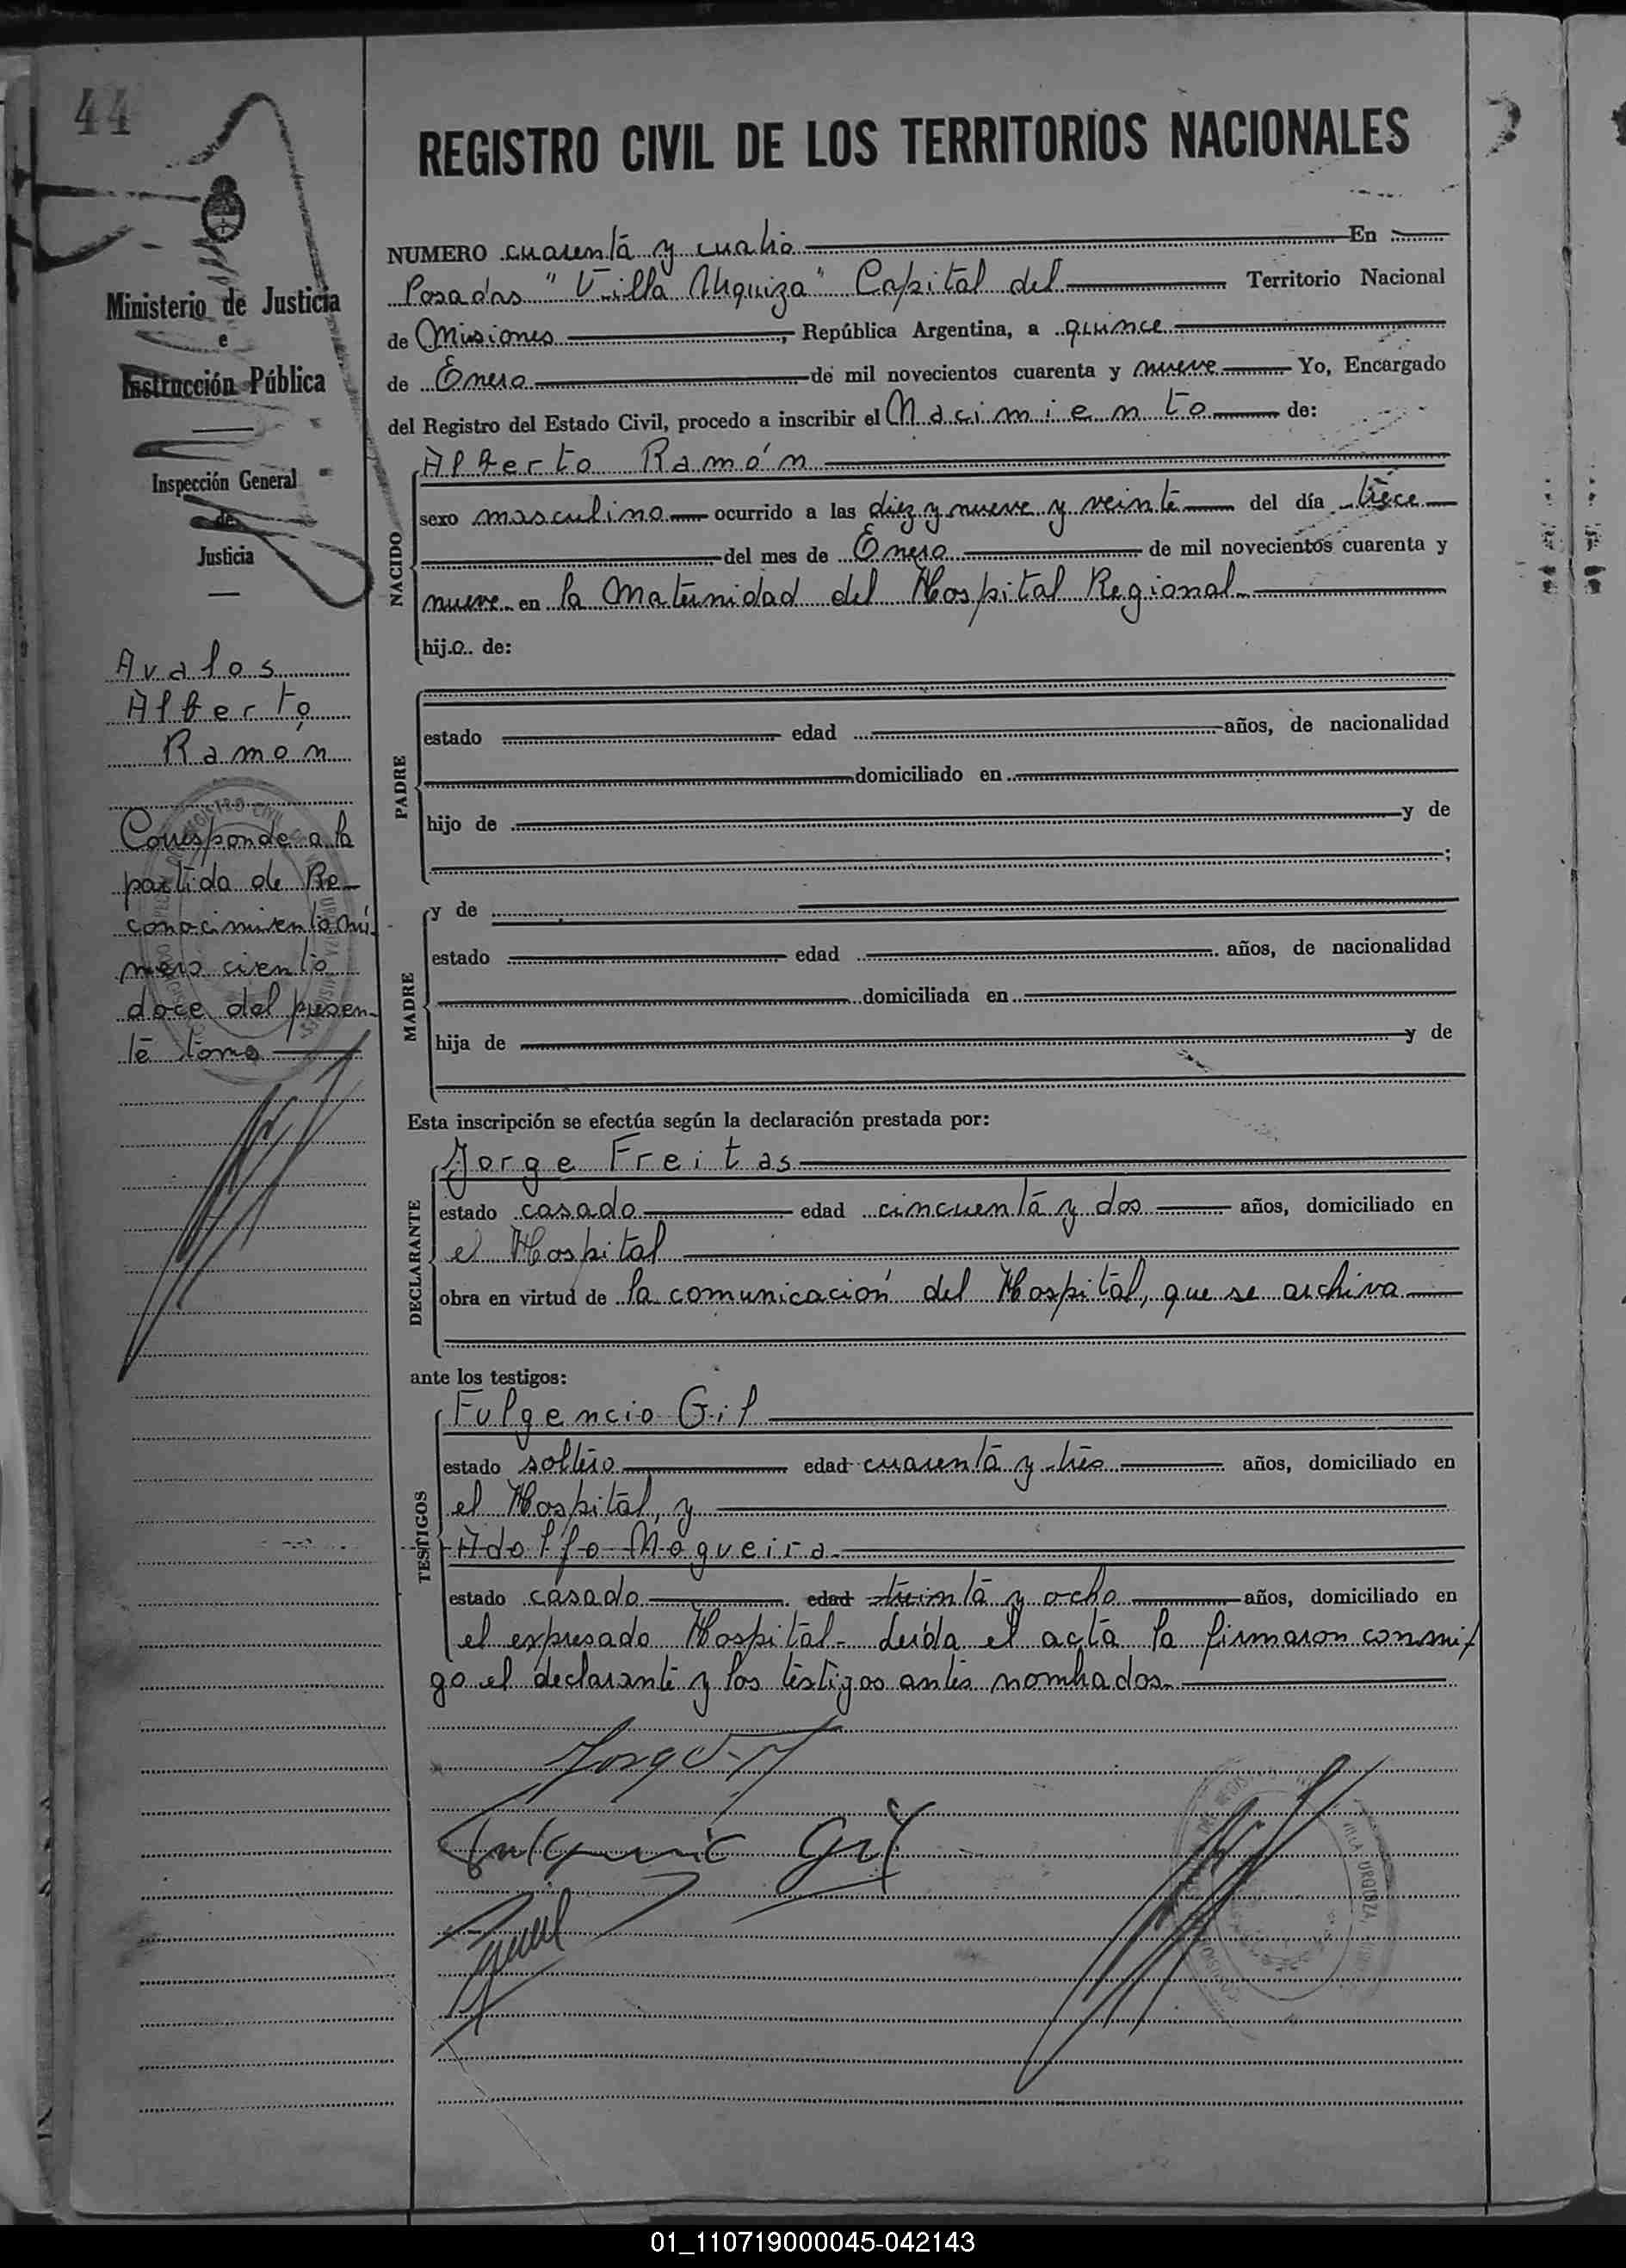 44
REGISTRO CIVIL DE LOS TERRITORIOS NACIONALES
Ministerio de Justicia
e
Instrucción Pública
Inspección General
de
Justicia
Avalos
Alberto
Ramón
Corresponde a la
partida de Re-
conocimiento nú-
mero ciento
doce del presen-
te tomo
NUMERO cuarenta y cuatro En
Posadas "Villa Urquiza" Capital del Territorio Nacional
de Misiones, República Argentina, a quince
de Enero de mil novecientos cuarenta y nueve Yo, Encargado
del Registro del Estado Civil, procedo a inscribir el Nacimiento de:
NACIDO
Alberto Ramón
sexo masculino ocurrido a las diez y nueve y veinte del día trece
del mes de Enero de mil novecientos cuarenta y
nueve en la Maternidad del Hospital Regional
hijo de:
PADRE
estado edad años, de nacionalidad
domiciliado en
hijo de y de
;
MADRE
y de
estado edad años, de nacionalidad
domiciliada en
hija de y de
Esta inscripción se efectúa según la declaración prestada por:
DECLARANTE
Jorge Freitas
estado casado edad cincuenta y dos años, domiciliado en
el Hospital
obra en virtud de la comunicación del Hospital, que se archiva
ante los testigos:
TESTIGOS
Fulgencio Gil
estado soltero edad cuarenta y tres años, domiciliado en
el Hospital, y
Adolfo Nogueira
estado casado edad treinta y ocho años, domiciliado en
el expresado Hospital- Leída el acta la firmaron conmi-
go el declarante y los testigos antes nombrados.
Fulgencio Gil
VILLA URQUIZA
01_110719000045-042143